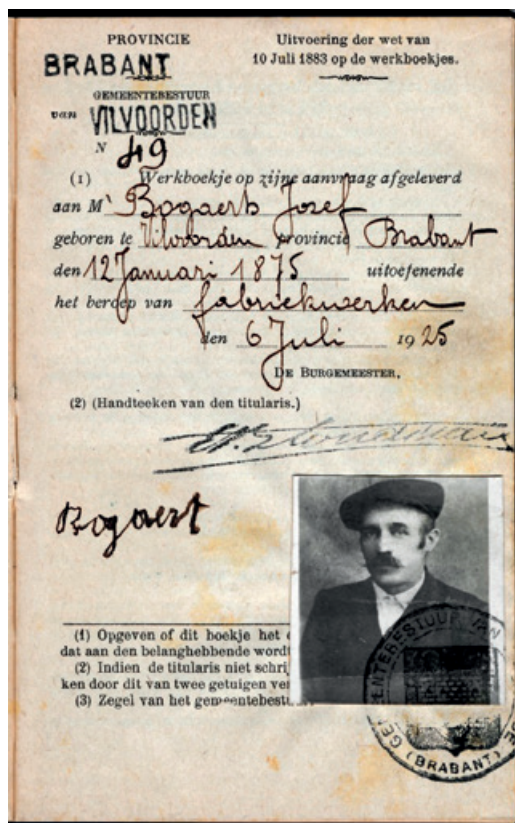 PROVINCIE
BRABANT
Uitvoering der wet van
10 Juli 1883 op de werkboekjes.
GEMEENTEBESTUUR
van VILVOORDEN
N 49
(1) Werkboekje op zijne aanvraag afgeleverd
aan Mr Bogaerts Jozef
geboren te Vilvoorden provincie Brabant
den 12 Januari 1875 uitoefenende
het beroep van fabriekwerken
den 6 Juli 1925
DE BURGEMEESTER,
(2) (Handteeken van den titularis.)
Bogaert
(1) Opgeven of dit boekje het
dat aan den belanghebbende wordt
(2) Indien de titularis niet
ken door dit van twee getuigen
(3) Zegel van het
GEMEENTEBESTUUR VAN
(BRABANT)